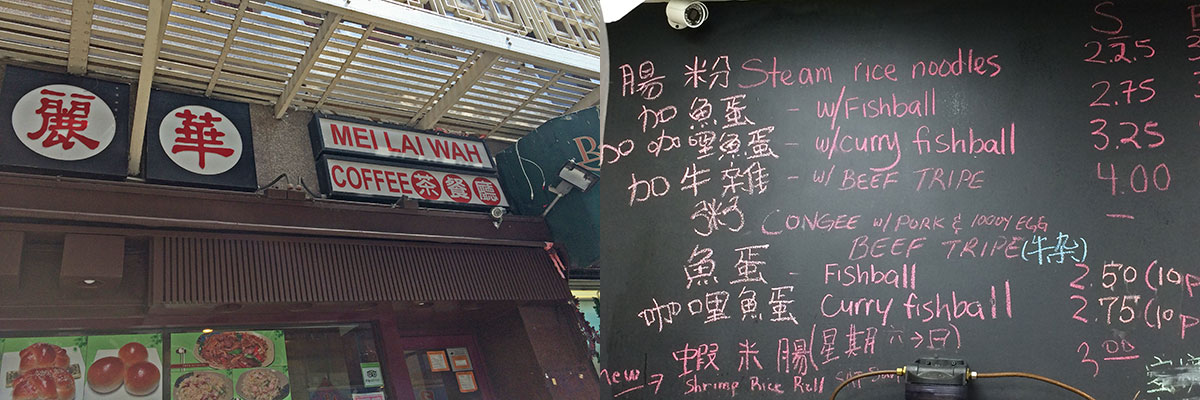 麗 華
MEI LAI WAH
COFFEE 茶餐廳
S
腸 粉 Steam rice noodles 2.25
加 魚蛋 - w/Fishball 2.75
加 咖哩魚蛋 - w/curry fishball 3.25
加 牛雜 - w/ BEEF TRIPE 4.00
粥 CONGEE w/ PORK & 1000Y EGG —
BEEF TRIPE (牛杂)
魚蛋 - Fishball 2.50 (10p
咖哩魚蛋 Curry fishball 2.75 (10p
蝦米腸 (星期六→日) 3.00
new → Shrimp Rice Roll SAT Sun